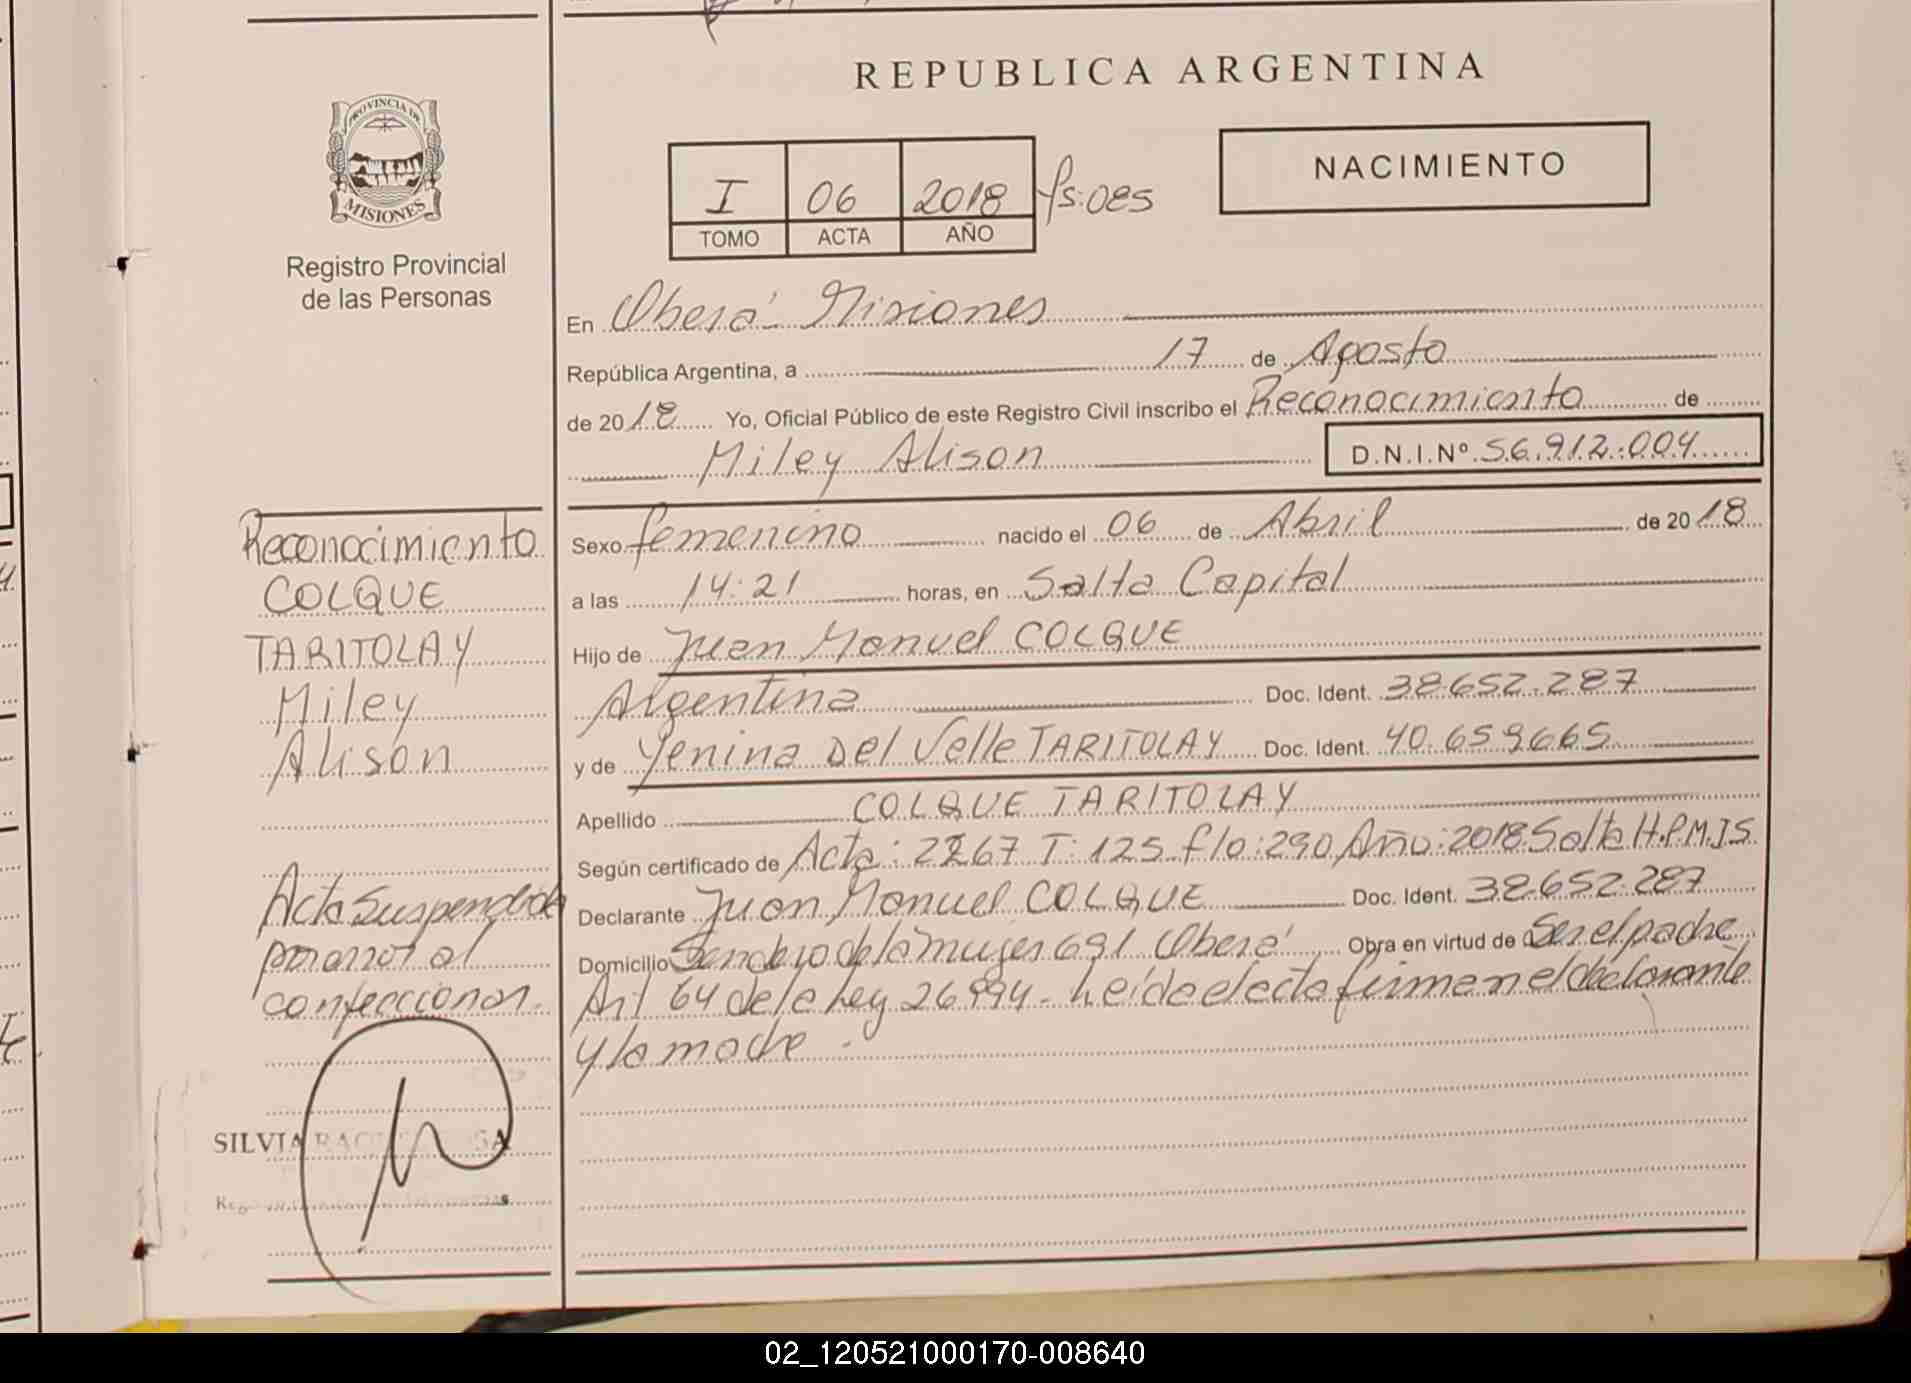 REPUBLICA ARGENTINA
PROVINCIA DE
MISIONES
Registro Provincial
de las Personas
I 06 2018 fs: 085
TOMO ACTA AÑO
NACIMIENTO
En Oberá Misiones
República Argentina, a 17 de Agosto
de 2018 Yo, Oficial Público de este Registro Civil inscribo el Reconocimiento de
Miley Alison D.N.I.Nº 56.912.004
Sexo femenino nacido el 06 de Abril de 2018
a las 14:21 horas, en Salta Capital
Hijo de Juan Manuel COLQUE
Argentina Doc. Ident. 38.652.287
y de Yenina Del Valle TARITOLAY Doc. Ident. 40.659665
Apellido COLQUE TARITOLAY
Según certificado de Acta: 2267 T: 125 flo: 290 Año: 2018 Salta H.P.M.I S.
Declarante Juan Manuel COLQUE Doc. Ident. 38.652.287
Domicilio Sendero de la mujer 691 Oberá Obra en virtud de Ser el padre
Art 64 de la Ley 26.994 - Leída el acta firman el declarante
y la madre.
Reconocimiento
COLQUE
TARITOLAY
Miley
Alison
Acta Suspendida
por error al
confeccionar.
SILVIA
02_120521000170-008640